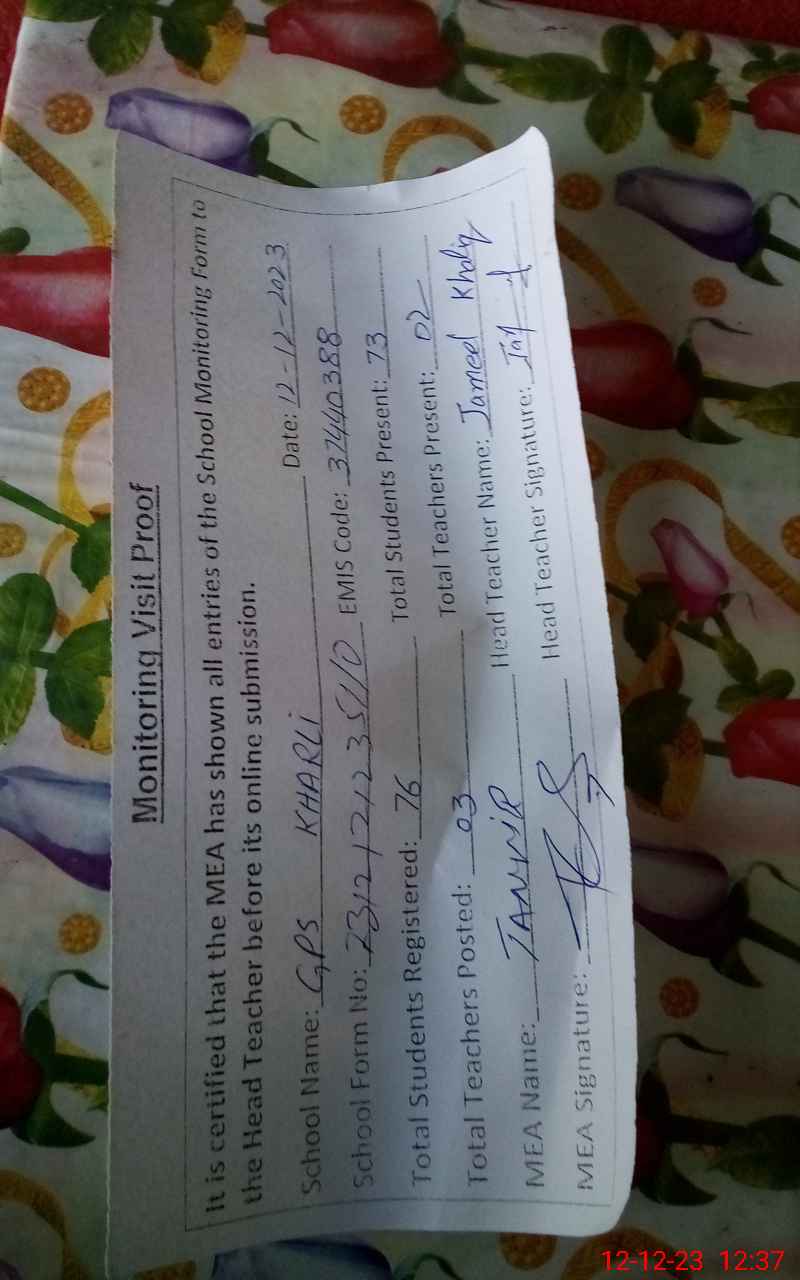 Monitoring Visit Proof
It is certified that the MEA has shown all entries of the School Monitoring Form to
the Head Teacher before its online submission.
School Name: GPS KHARLI Date: 12-12-2023
School Form No: 2312121235110 EMIS Code: 37440388
Total Students Registered: 76 Total Students Present: 73
Total Teachers Posted: 03 Total Teachers Present: 02
MEA Name: TANVIR Head Teacher Name: Jameel Khaliq
MEA Signature: Head Teacher Signature:
12-12-23 12:37